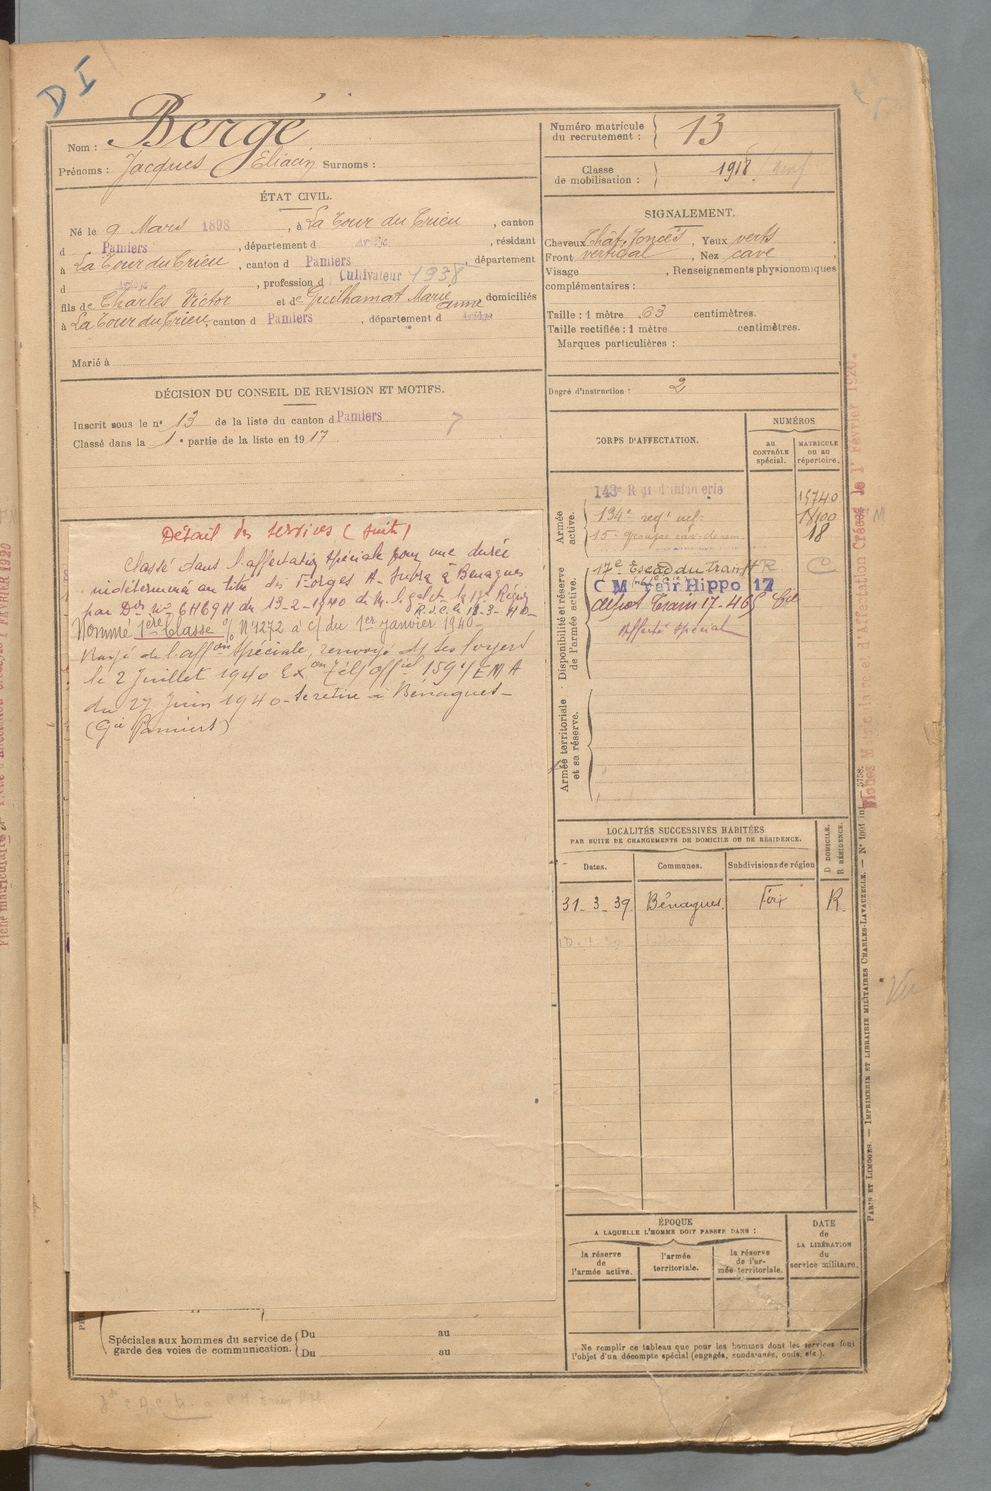 D I
Nom : Bergé
Prénoms : Jacques Eliacin Surnoms :
Numéro matricule du recrutement : 13
Classe de mobilisation : 1918
ÉTAT CIVIL.
Né le 9 Mars 1898, à La Tour du Crieu, canton
d Pamiers, département d Ariège, résidant
à La Tour du Crieu, canton d Pamiers, département
d Ariège, profession d Cultivateur 1938
fils de Charles Victor et de Guilhamat Marie anne domiciliés
à La Tour du Crieu, canton d Pamiers, département d Ariège
Marié à
SIGNALEMENT.
Cheveux Chât. foncés, Yeux verts,
Front vertical, Nez cave
Visage , Renseignements physionomiques
complémentaires :
Taille : 1 mètre 63 centimètres.
Taille rectifiée : 1 mètre centimètres.
Marques particulières :
Degré d'instruction : 2
DÉCISION DU CONSEIL DE REVISION ET MOTIFS.
Inscrit sous le n° 13 de la liste du canton d Pamiers 7
Classé dans la 1e partie de la liste en 1917
Détail des services (suite)
Classé dans l'affectation spéciale pour une durée
indéterminée au titre des Forges A. à Bénagues
par D 6469H du 13-2-1940 de M. le gal ct la 17e Région
R.d.c. le 18-3-40
Nommé 1ère Classe N°1272 à c/ du 1er janvier 1940
Rayé de l'affon spéciale, renvoyé ds ses foyers
le 2 Juillet 1940 Exon Tel. offiel 1594 EMA
du 27 Juin 1940 - Se retire à Bénagues -
(Gie Pamiers)
CORPS D'AFFECTATION.
NUMÉROS
AU CONTRÔLE spécial.
MATRICULE OU AU répertoire.
Armée active.
143e Régt d'infanterie 15740
134e regt inf. 18100
15e groupe 18
Disponibilité et réserve de l'armée active.
17e Escon du train R C
C M Veir Hippo 17
dépôt Train 17 - 465
Affecté spécial
Armée territoriale et sa réserve.
LOCALITÉS SUCCESSIVES HABITÉES
PAR SUITE DE CHANGEMENTS DE DOMICILE OU DE RÉSIDENCE.
Dates. Communes. Subdivisions de région D DOMICILE. R RÉSIDENCE.
31-3-39 Bénagues. Foix R.
ÉPOQUE
A LAQUELLE L'HOMME DOIT PASSER DANS :
la réserve de l'armée active.
l'armée territoriale.
la réserve de l'armée territoriale.
DATE de LA LIBÉRATION du service militaire.
Spéciales aux hommes du service de garde des voies de communication.
Du au
Du au
Ne remplir ce tableau que pour les hommes dont les services font
l'objet d'un décompte spécial (engagés, condamnés, omis, etc.).
PARIS ET LIMOGES. — IMPRIMERIE ET LIBRAIRIE MILITAIRES CHARLES-LAVAUZELLE. — N° 1001
Fiches Matriculaire et d'Affectation Créées le 1er Février 1920.
Vu